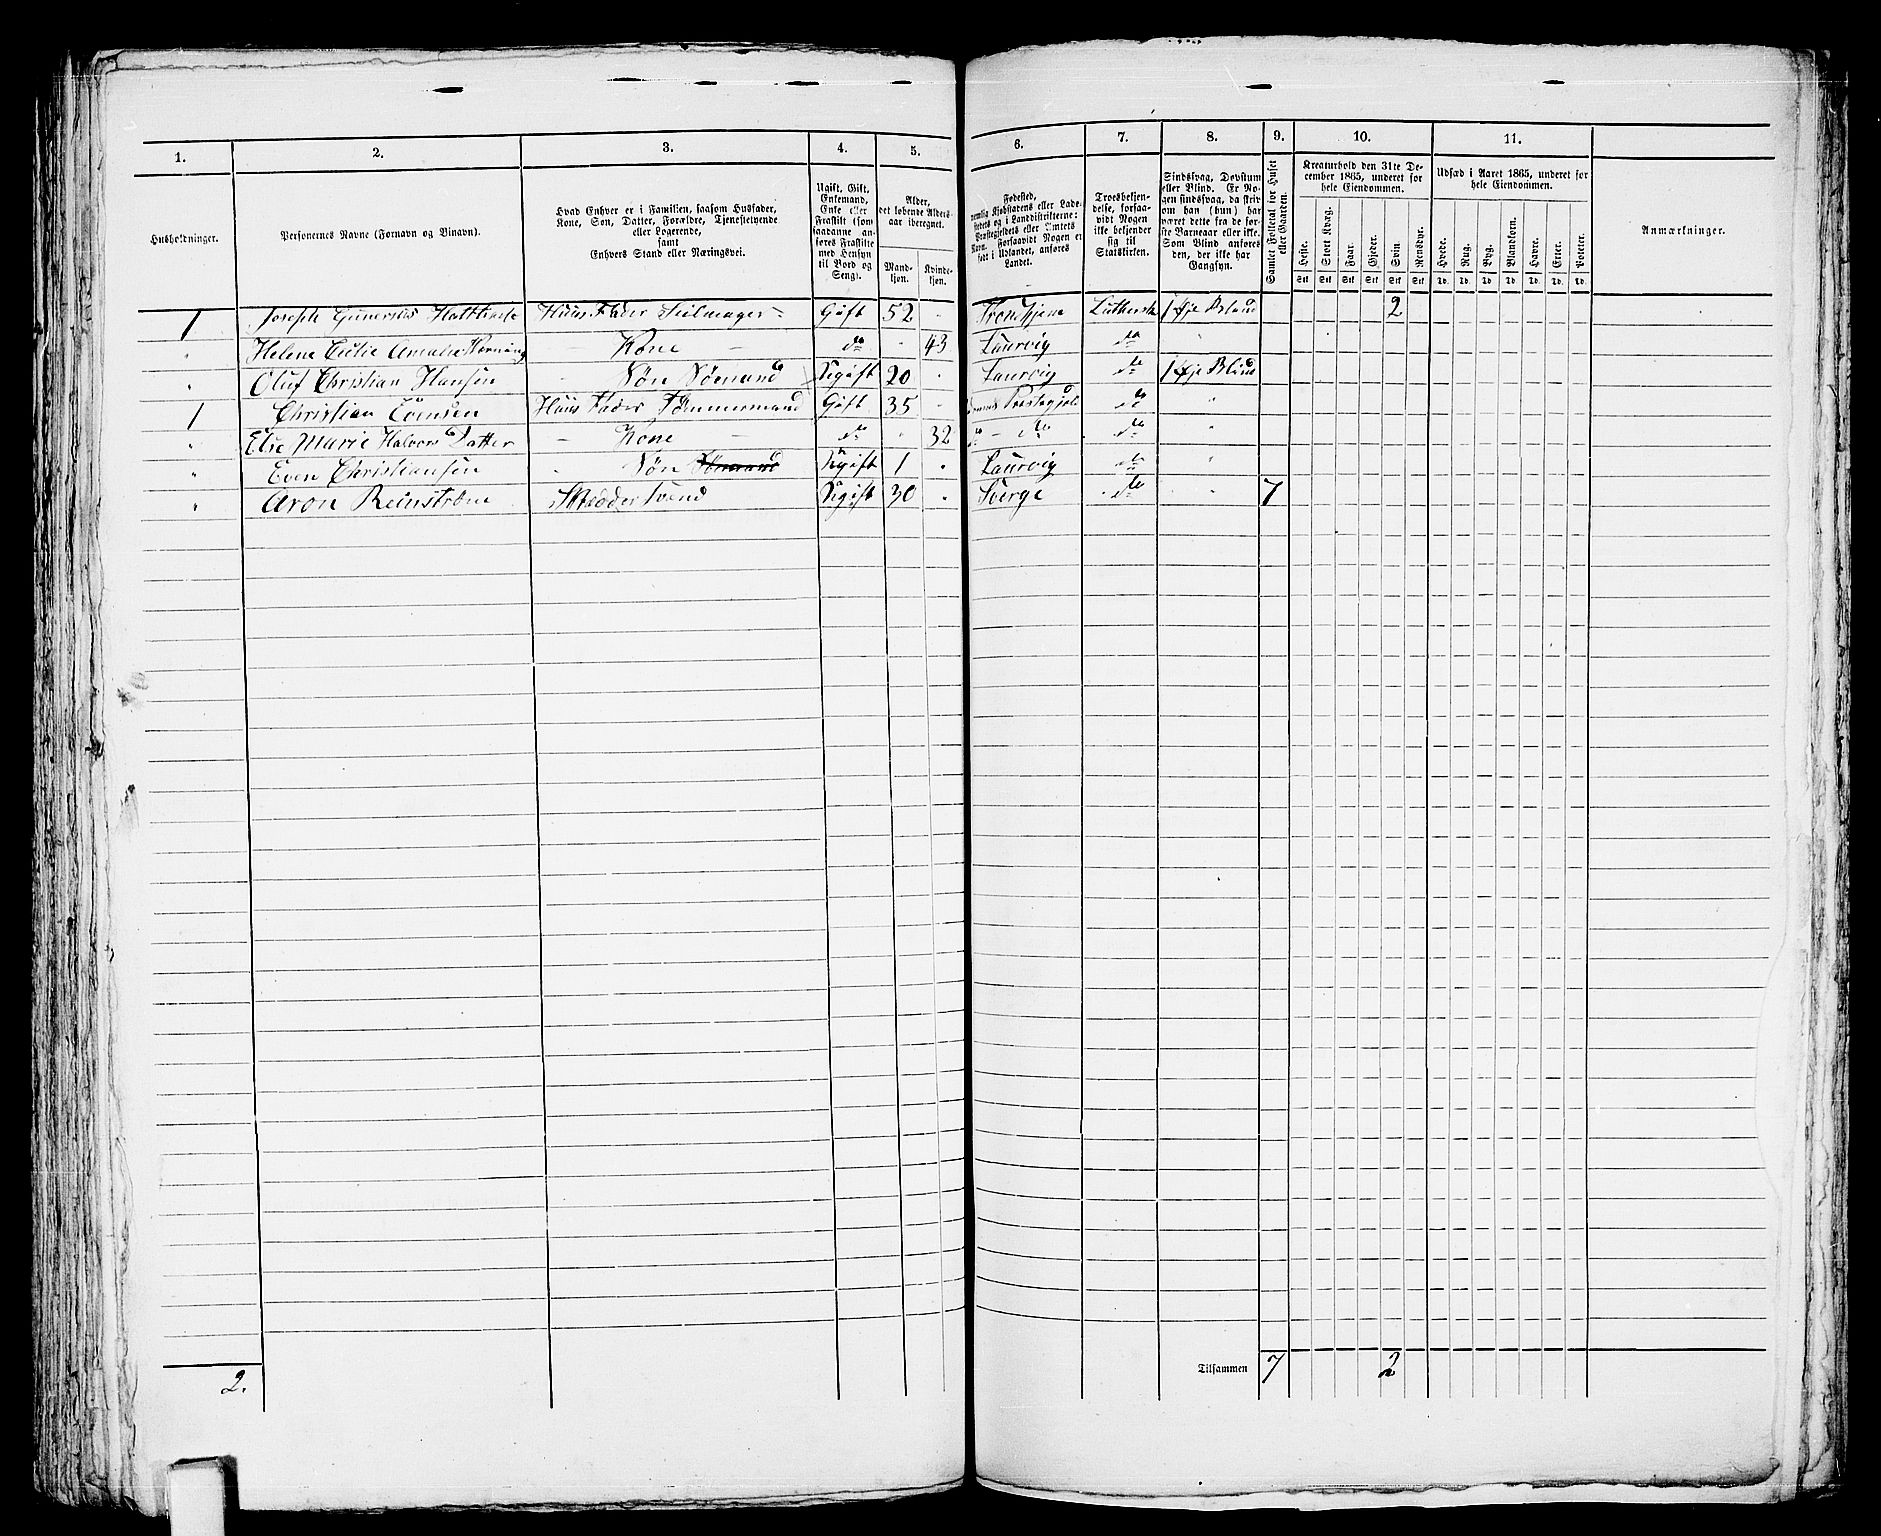 1. 2. 3. 4. 5. 6. 7. 8. 9. 10. 11.
Husholdninger.
Personernes Navne (Fornavn og Tilnavn).
Hvad Enhver er i Familien, saasom Husfader,
Kone, Søn, Datter, Forældre, Tjenestetyende
eller Logerende,
samt
Enhvers Stand eller Næringsvei.
Ugift, Gift,
Enkemand,
Enke eller
Fraskilt (som
saadanne an-
føres Fraskilte
med Hensyn
til Bord og
Seng).
Alder,
det løbende Alders-
aar iberegnet.
Mand-
kjøn.
Kvinde-
kjøn.
Fødested,
nemlig Kjøbstadens eller Lade-
stedets og i Landdistrikterne:
Præstegjeldets eller Sognets
Navn. Forsaavidt Nogen er
født i Udlandet, anføres
Landet.
Troesbekjen-
delse, forsaa-
vidt Nogen
ikke bekjender
sig til
Statskirken.
Sindssvag, Døvstum
eller Blind. Er No-
gen sindssvag, da skriv
om han (hun) har
været dette fra de før-
ste Barneaar eller ikke.
Som Blind anføres
den, der ikke har
Gangsyn.
Samlet Folketal for Huset
eller Gaarden.
Kreaturhold den 31te De-
cember 1865, underet for
hele Eiendommen.
Heste. Stort Kvæg. Faar. Gjeder. Svin. Rensdyr.
Stk. Stk. Stk. Stk. Stk. Stk.
Udsæd i Aaret 1865, underet for
hele Eiendommen.
Hvede. Rug. Byg. Blandkorn. Havre. Erter. Poteter.
Td. Td. Td. Td. Td. Td. Td.
Anmærkninger.
1 Joseph Gunerius Huus Fader Seilmager Gift 52 Trondhjem Luthersk 1 Øje Blind 2
" Helene Amalie Kone do 43 Laurvig do "
" Oluf Christian Hansen Søn Sømand Ugift 20 Laurvig do 1 Øje Blind
1 Christian Evensen Huus Fader Tømmermand Gift 35 Præstegjeld do "
" Else Marie Halvors Datter Kone do 32 do do "
" Even Christiansen Søn Sømand Ugift 1 Laurvig do "
" Aron Reinstrøm Skrædder Svend Ugift 30 Sverge do " 7
2. Tilsammen 7 2